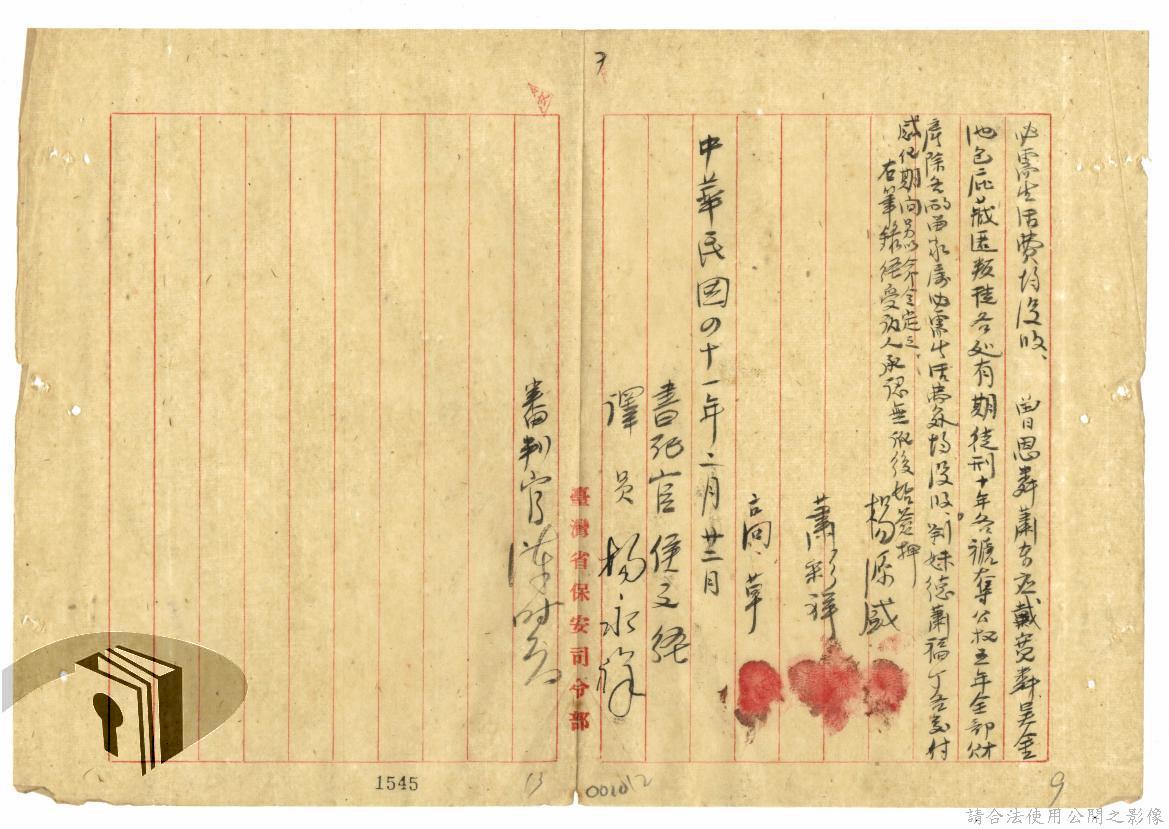 必需生活費均沒收、 曾恩霖蕭吉丘戴寬霖吳金
池包庇藏匿叛徒各处有期徒刑十年各褫奪公权五年全部財
產除各酌留家屬必需生活費外均沒收、 妹德蕭福丁各交付
感化期間另以命令定之、
右筆錄經受訊人承認無訛後始簽押
楊源盛
蕭彩祥
高草
中華民國四十一年二月廿三日
書記官侯文
譯員楊永祥
臺灣省保安司令部
審判官
7
9
001012
13
1545
請合法使用公開之影像